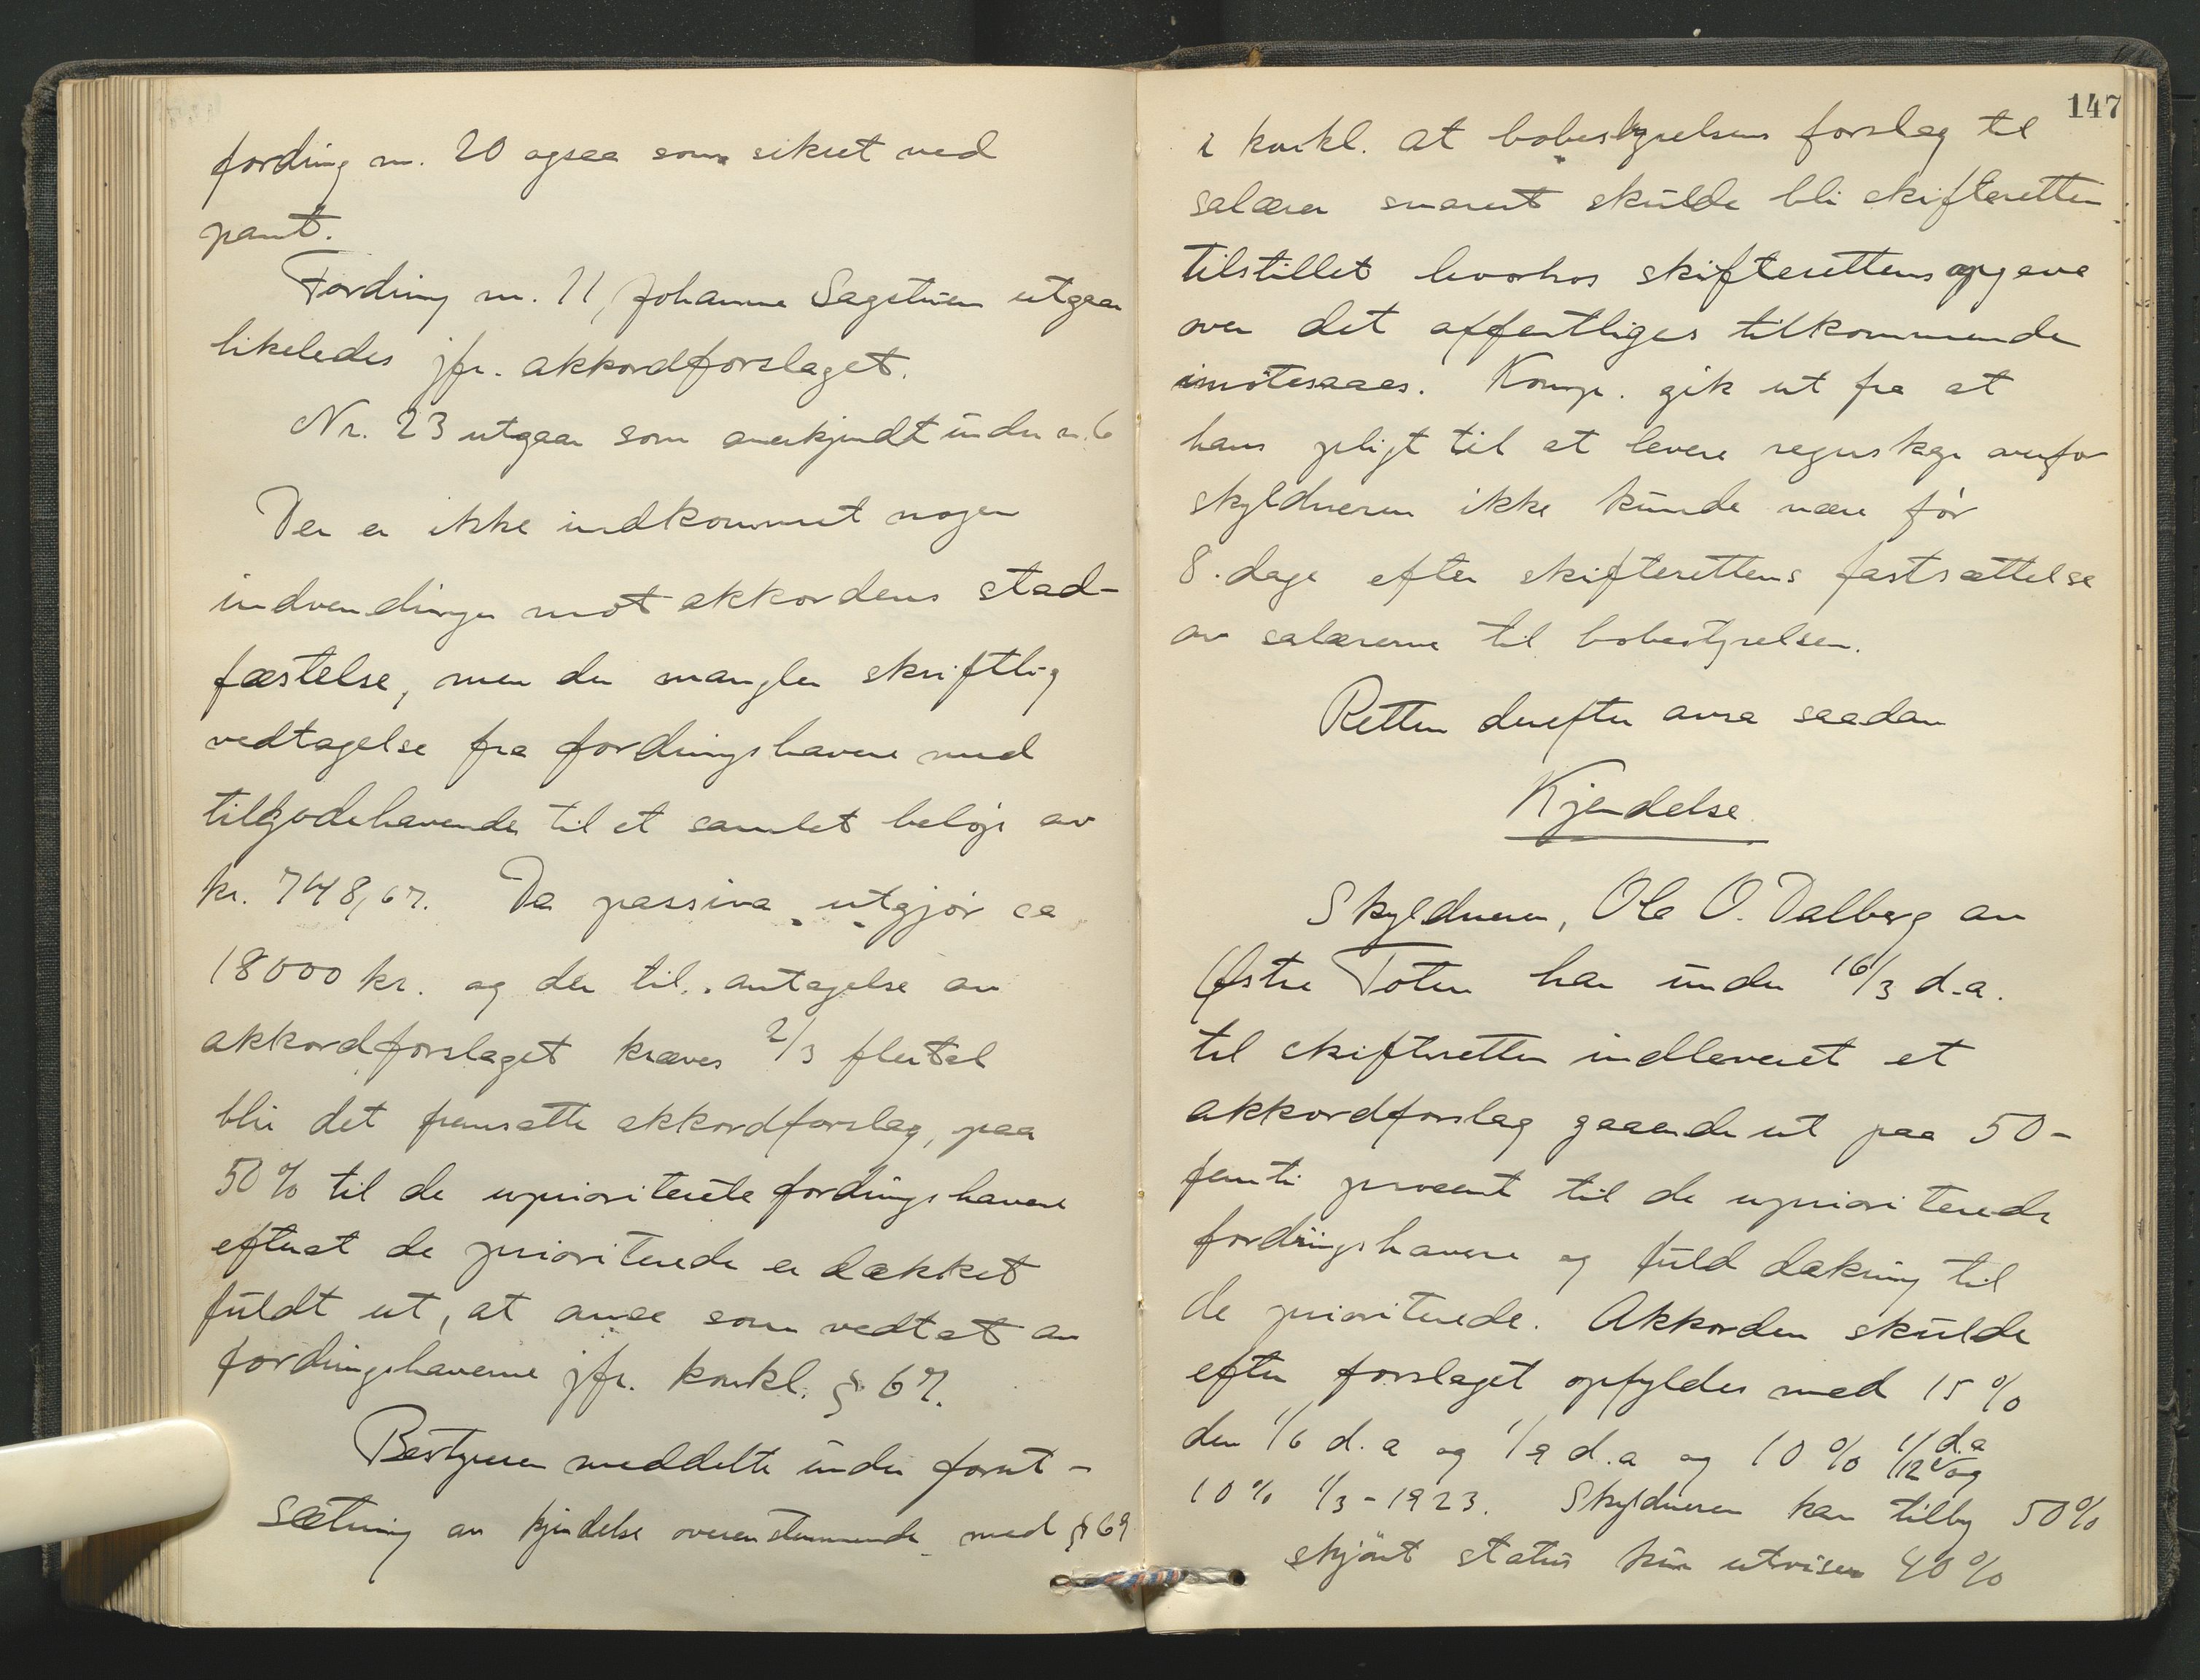 fordring nr. 20 ogsaa som sikret ved
pant.
Fordring nr. 11, Johanne Sagstuen utgaar
likeledes jfr. akkordforslaget.
Nr. 23 utgaar som anerkjendt under nr. 6
Der er ikke indkommet nogen
indvendinger mot akkordens stad-
fæstelse, men der mangler skriftlig
vedtagelse fra fordringshavere med
tilgodehavende til et samlet beløp av
kr. 748,67. Da passiva utgjør ca
18000 kr. og der til antagelse av
akkordforslaget kræves 2/3 flertal
blir det fremsatte akkordforslag, paa
50% til de uprioriterte fordringshavere
efterat de prioriterede er dækket
fuldt ut, at anse som vedtat av
fordringshaverne jfr. konkl. § 67.
Bestyreren meddelte under forut-
sætning av kjendelse overensstemmende med § 69
147
i konkl. at bobestyrelsens forslag til
salærer snarest skulde bli skifteretten
tilstillet hvorhos skifterettens opgave
over det offentliges tilkommende
imøtesaaes. Komp. gik ut fra at
hans pligt til at levere regnskap overfor
skyldneren ikke kunde være før
8. dage efter skifterettens fastsættelse
av salærerne til bobestyrelsen.
Retten derefter avsa saadan
Kjendelse
Skyldneren, Ole O. Dalberg av
Østre Toten har under 16/3 d.a.
til skifteretten indleveret et
akkordforslag gaaende ut paa 50-
femti procent til de uprioriterede
fordringshavere og fuld dækning til
de prioriterede. Akkorden skulde
efter forslaget opfyldes med 15%
den 1/6 d.a og 1/9 d.a og 10% 1/12 d.a og
10% 1/3-1923. Skyldneren kan tilby 50%
skjønt status kun utviser 40%